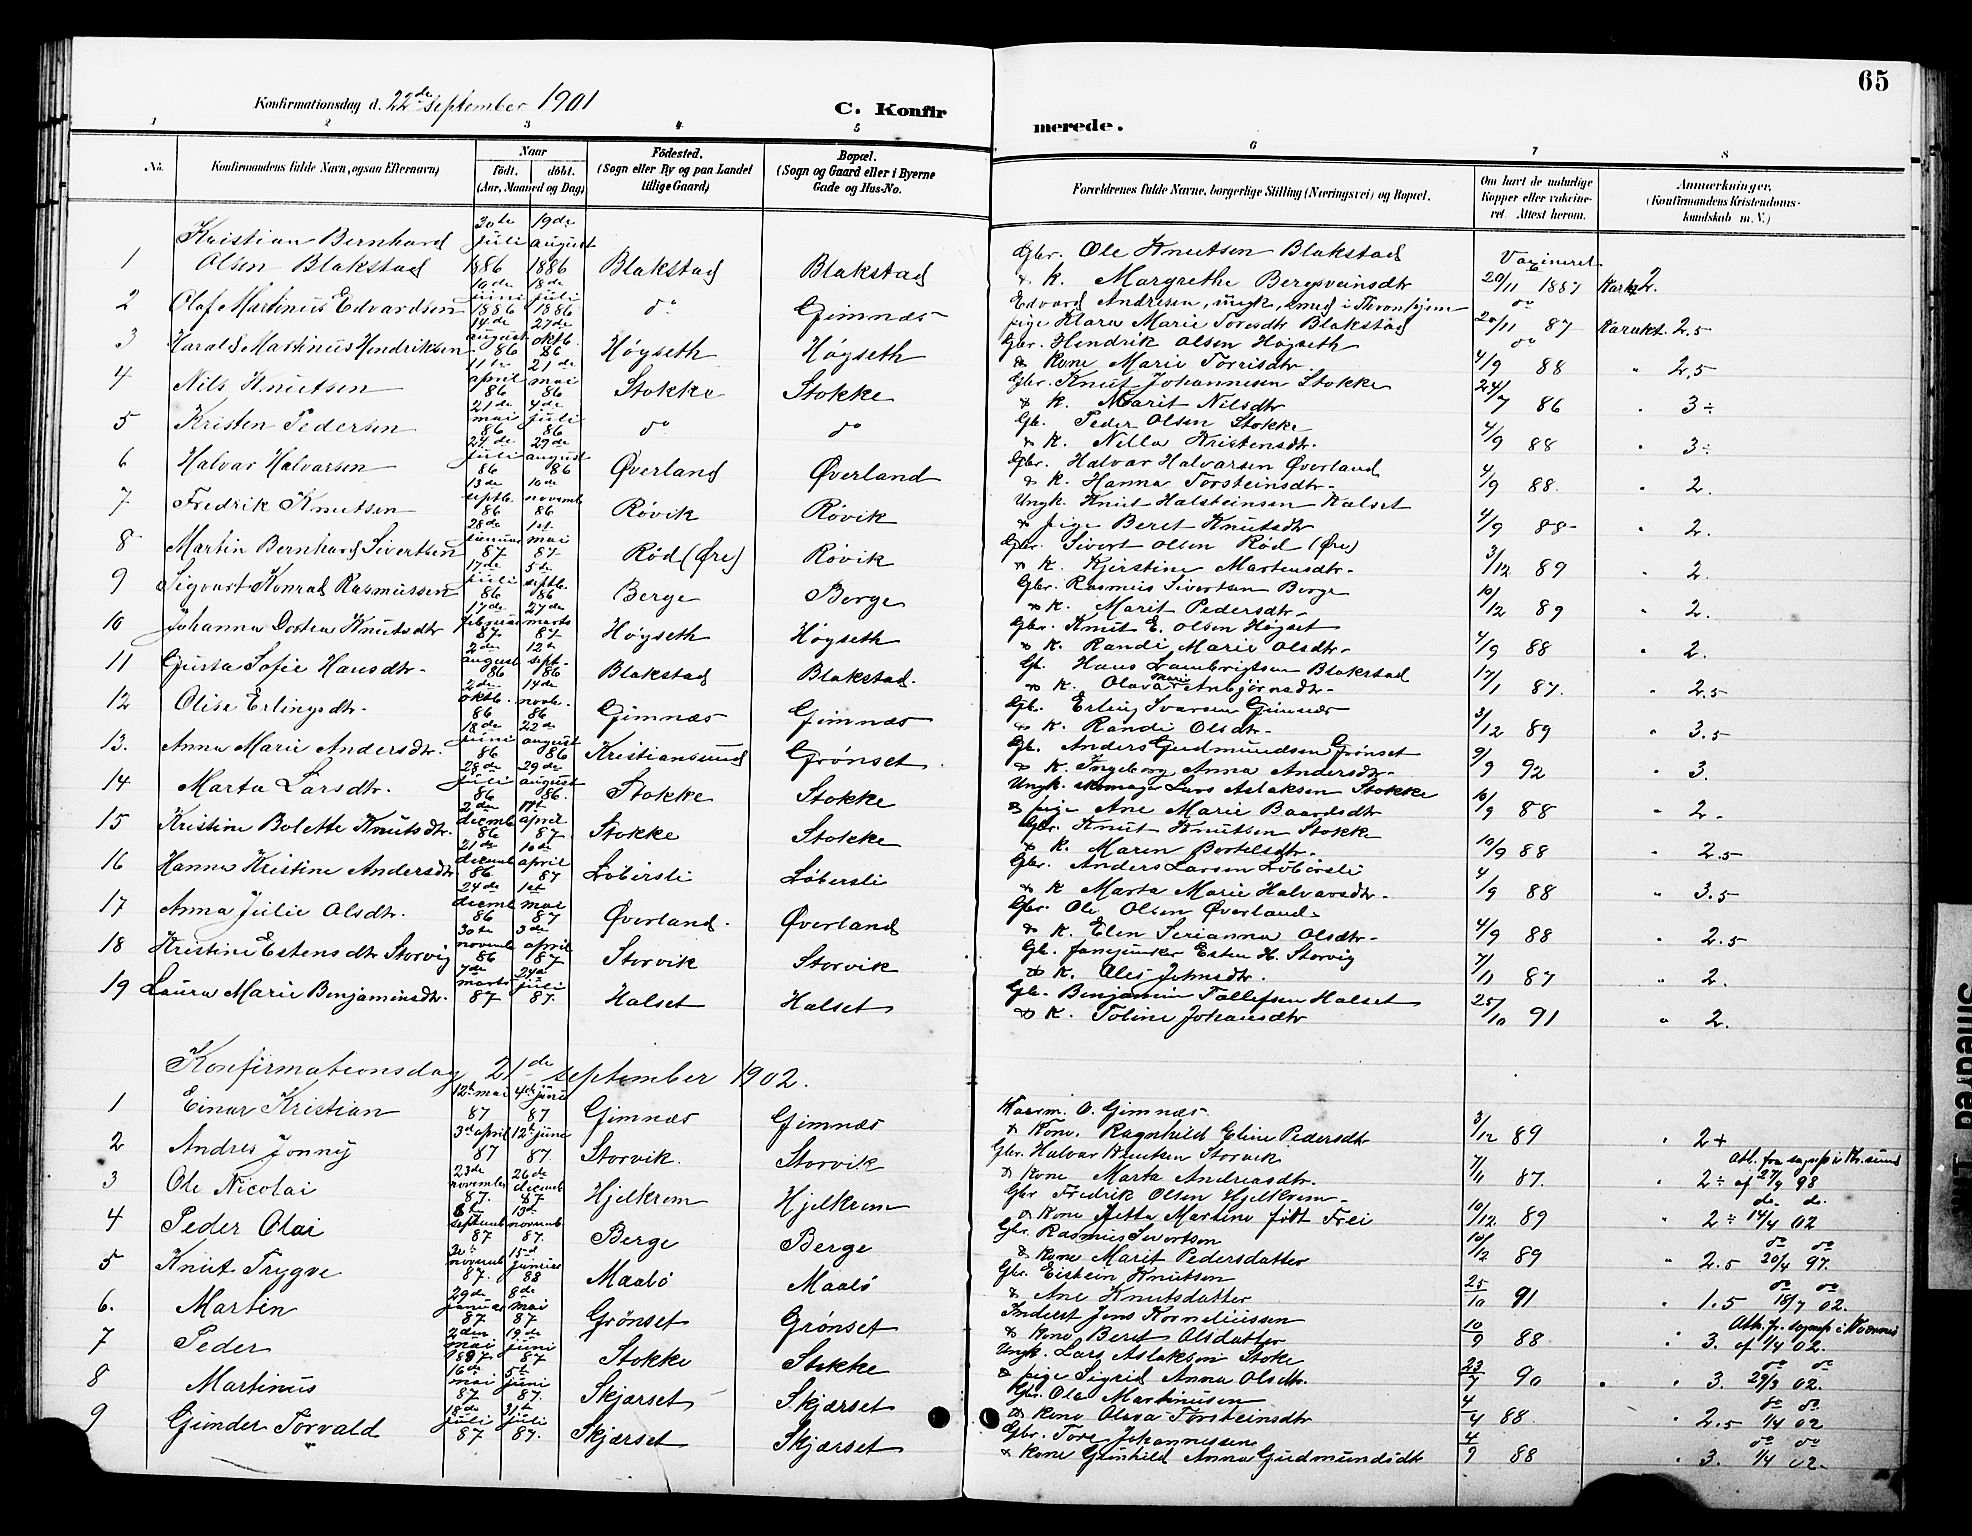 65
Konfirmationsdag d. 22de september 1901
C. Konfirmerede.
1 2 3 4 5 6 7 8
No. Konfirmandens fulde Navn, ogsaa Efternavn) Naar födt. döbt. (Aar, Maaned og Dag) Födested. (Sogn eller By og paa Landet tillige Gaard) Bopæl. (Sogn og Gaard eller i Byerne Gade og Hus-No. Forældrenes fulde Navne, borgerlige Stilling (Næringsvei) og Bopæl. Om havt de naturlige Kopper eller vakcineret. Attest herom. Anmærkninger. (Konfirmandens Kristendomskundskab m. V.)
1 Kristian Bernhard Olsen Blakstad 30te juli 1886 19de august 1886 Blakstad Blakstad Gbr. Ole Knutsen Blakstad & K. Margrethe Bergsveinsdtr Vaxineret 20/11 1887 Kark 2.
2 Olaf Martinius Edvardsen 10de juni 1886 18de juli 1886 do Gimnæs Edvard Andresen, ungk, smed i Thronhjem pige Klara Marie Toresdtr Blakstad do 20/11 87 Karakt. 2.5
3 Harald Martinius Hendriksen 14de august 86 27de oktb. 86 Høgseth Høgseth Gbr. Hendrik Olsen Høgseth & Kone Marie Torrisdtr. do 4/9 88 " 2,5
4 Nils Knutsen 11te april 86 21de mai 86 Stokke Stokke Gbr. Knut Johannesen Stokke & K. Marit Nilsdtr 24/7 86 " 3÷
5 Kristen Pedersen 21de mai 86 4de juli 86 do do Gb. Peder Olsen Stokke & K. Nilla Kristensdtr. 4/9 88 " 3÷
6 Halvar Halvarsen 24de juli 86 29de august 86 Øverland Øverland Gbr. Halvar Halvarsen Øverland & K. Hanna Torsteinsdtr. 4/9 88. " 2.
7 Fredrik Knutsen 13de septb. 86 10de novemb 86 Røvik Røvik Ungk. Knut Halsteinsen Halset & pige Beret Knutsdtr 4/9 88 " 2.
8 Martin Bernhard Sivertsen 28de januar 87 1ste mai 87 Rød (Øre) Røvik Gbr. Sivert Olsen Rød (Øre) & K. Kjerstine Martensdtr. 3/12 89 " 2.
9 Sigvart Konrad Rasmussen 17de juli 86 5te septb. 86 Berge Berge Gbr. Rasmus Sivertsen Berge & K. Marit Pedersdtr. 10/12 89 " 2.
10 Johanna Dortea Knutsdtr 17de februar 87 27de marts 87 Høgseth Høgseth Gbr. Knut E. Olsen Høgset & K. Randi Marie Olsdtr. 4/9 88 " 2.
11 Gjurta Sofie Hansdtr. 2de august 86 12te sept. 86 Blakstad Blakstad. Gb. Hans Lambrigtsen Blakstad & K. Olava Marie Anbjørnsdtr. 17/1 87. " 2.5
12 Olise Erlingsdtr. 2de oktb. 86 14de novb. 86 Gimnæs Gimnæs Gb. Erling Ivarsen Gimnæs & K. Randi Olsdtr. 3/12 89 " 3.5
13. Anna Marie Andersdtr. 18de juni 86 22de august 86 Kristiansund Grønset Gb. Anders Gudmundsen Grønset & K. Ingeborg Anna Andersdtr. 9/9 92 " 3.
14 Marta Larsdtr. 28de juli 86 29de august 86. Stokke Stokke Ungk. skomager Lars Aslaksen Stokke & pige Ane Marie Baardsdtr 10/9 88 " 2.
15 Kristine Bolette Knutsdtr. 2den decemb 86 17de april 87 Stokke Stokke Gbr. Knut Knutsen Stokke & K. Maren Bertelsdtr. 10/9 88 " 2.5
16 Hanna Kristine Andersdtr 21de decemb 86 10de april 87 Løbersli Løbersli Gbr. Anders Larsen Løbersli & K Marta Marie Halvarsdtr. 4/9 88 " 3.5
17 Anna Julie Olsdtr. 24de decemb 86 1ste mai 87 Øverland. Øverland Gbr. Ole Olsen Øverland. & K. Elen Serianna Olsdtr. 4/9 88 " 2.5
18 Kristine Estensdtr Storvig 30te novemb 86 3de april 87 Storvik Storvik Gb. fanejunker Esten H. Storvig & K. Ales Johnsdtr. 7/11 87 " 2.
19 Laura Marie Benjaminsdtr. 7de marts 87 24de juli 87. Halset Halset Gb. Benjamin Tollefsen Halset & K. Toline Johansdtr 25/10 91 " 2.
Konfirmationsdag 21de september 1902.
1 Einar Kristian 12te mai 87 4de juni 87 Gimnæs Gimnæs Rasm. O. Gimnæs & Kone. Ragnhild Eline Pedersdtr 3/12 89 " 2+
2 Andres Jonny 3de april 87 12te juni 87 Storvik. Storvik Gbr. Halvar Knutsen Storvik & Kone Marta Andreasdtr. 7/11 87. " 2÷ Att. fra sognep i Kr.sund af 27/9 98
3 Ole Nicolai 23de november 87. 26de decemb 87 Hjelkrem Hjelkrem Gbr Fredrik Olsen Hjelkrem. & Kone Jetta Martine født Frei 10/12 89 " 2÷ do. do. 14/4 02
4 Peder Olai 8de septemb 87 13de novemb 87. Berge Berge Gbr. Rasmus Sivertsen & Kone Marit Pedersdatter 10/12 89 " 2.5 do do 20/4 97.
5 Knut Trygve 30te novemb 87. 15de januar 88 Maalø Maalø Gbr. Eistein Knutsen & Ane Knutsdatter 25/10 91 " 1.5 do do 18/7 02.
6. Martin 29de januar 87 8de mai 87 Grønset Grønset Inderst Jens Korneliussen & Kone Beret Olsdatter 10/9 88 " 3. Att. fr. sognep i Kvernes af 1/4 02.
7 Peder 2den mai 1887 19de juni 87 Stokke Stokke Ungk. Lars Aslaksen Stoke & pige Sigrid Anna Olsdtr. 23/7 90 " 3. do do 29/3 02.
8 Martinus 16de mai 87 5te juni 87. Skjærset Skjærset Gbr. Ole Martinusen & Kone Olava Torsteinsdtr 4/4 88. " 2.5 do do 1/4 02
9 Gunder Torvald 18de juli 87 31te juli 87. Skjærset Skjærset Gbr. Tore Johannessen & Kone Gunhild Anna Gudmundsdtr 4/9 88 " 3. do do 1/4 02.